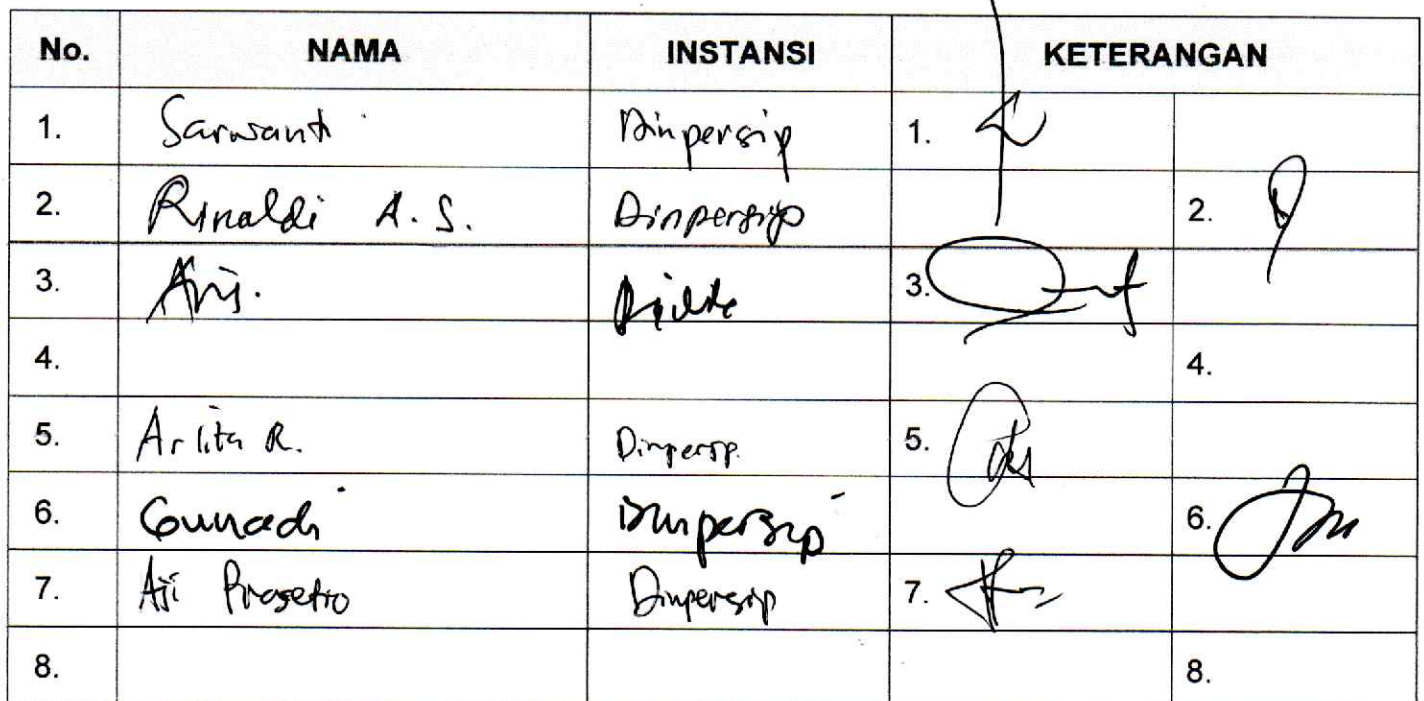 No. NAMA INSTANSI KETERANGAN
1. Sarwanti Dinpersip 1.
2. Rinaldi A. S. Dinpersip 2.
3. Aris. 3.
4. 4.
5. Arlita R. Dinpersip. 5.
6. Gunadi Dinpersip 6.
7. Aji Prasetio Dinpersip 7.
8. 8.